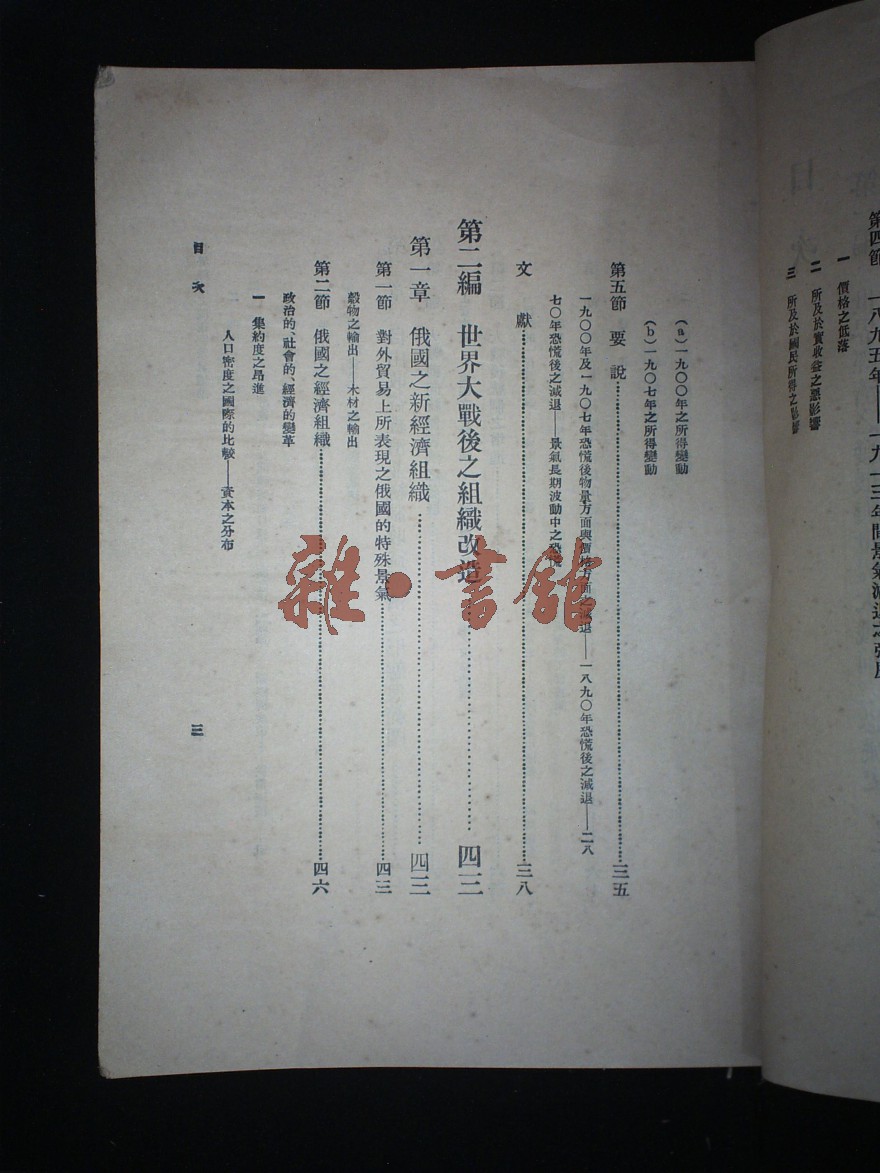 第四節 一八九五年——一九一三年間景氣減退之強度
一 價格之低落
二 所及於實收益之惡影響
三 所及於國民所得之影響
(a)一九〇〇年之所得變動
(b)一九〇七年之所得變動
第五節 要說……三五
一九〇〇年及一九〇七年恐慌後物量方面與價格方面之減退——一八九〇年恐慌後之減退——一八
七〇年恐慌後之減退——景氣長期波動中之恐慌
文獻……三八
第二編 世界大戰後之組織改造……四三
第一章 俄國之新經濟組織……四三
第一節 對外貿易上所表現之俄國的特殊景氣……四三
穀物之輸出——木材之輸出
第二節 俄國之經濟組織……四六
政治的、社會的、經濟的變革
一 集約度之昂進
人口密度之國際的比較——資本之分布
目次
三
雜·書館